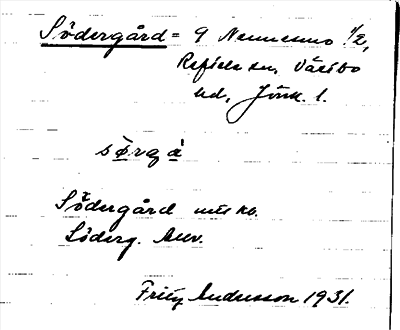 Södergård = 9 Nennesmo 1/2,
Reftele sn, Västbo
hd, Jönk. l.
sørgå
Södergård
Söderg.
Fritz Andersson 1931.